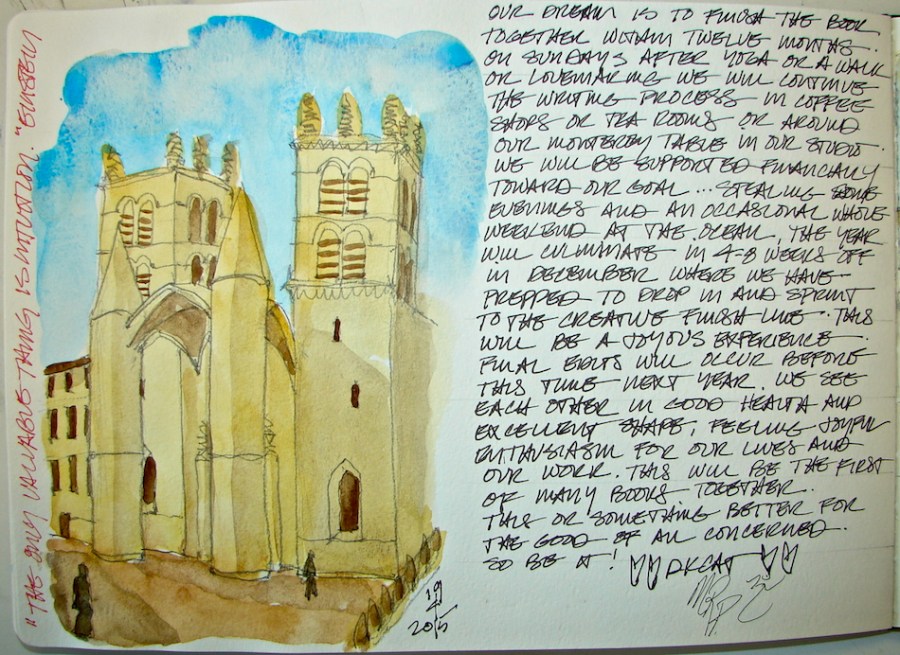 "THE ONLY VALUABLE THING IS INTUITION." EINSTEIN
OUR DREAM IS TO FINISH THE BOOK
TOGETHER WITHIN TWELVE MONTHS.
ON SUNDAYS AFTER YOGA OR A WALK
OR LOVEMAKING WE WILL CONTINUE
THE WRITING PROCESS IN COFFEE
SHOPS OR TEA ROOMS OR AROUND
OUR MONTEREY TABLE IN OUR STUDIO.
WE WILL BE SUPPORTED FINANCIALLY
TOWARD OUR GOAL... STEALING SOME
EVENINGS AND AN OCCASIONAL WHOLE
WEEKEND AT THE OCEAN. THE YEAR
WILL CULMINATE IN 4-8 WEEKS OFF
IN DECEMBER WHERE WE HAVE
PREPPED TO DROP IN AND SPRINT
TO THE CREATIVE FINISH LINE. THIS
WILL BE A JOYOUS EXPERIENCE.
FINAL EDITS WILL OCCUR BEFORE
THIS TIME NEXT YEAR. WE SEE
EACH OTHER IN GOOD HEALTH AND
EXCELLENT SHAPE, FEELING JOYFUL
ENTHUSIASM FOR OUR LIVES AND
OUR WORK. THIS WILL BE THE FIRST
OF MANY BOOKS. TOGETHER.
THIS OR SOMETHING BETTER FOR
THE GOOD OF ALL CONCERNED.
SO BE IT! DKCAT
19
4
2015